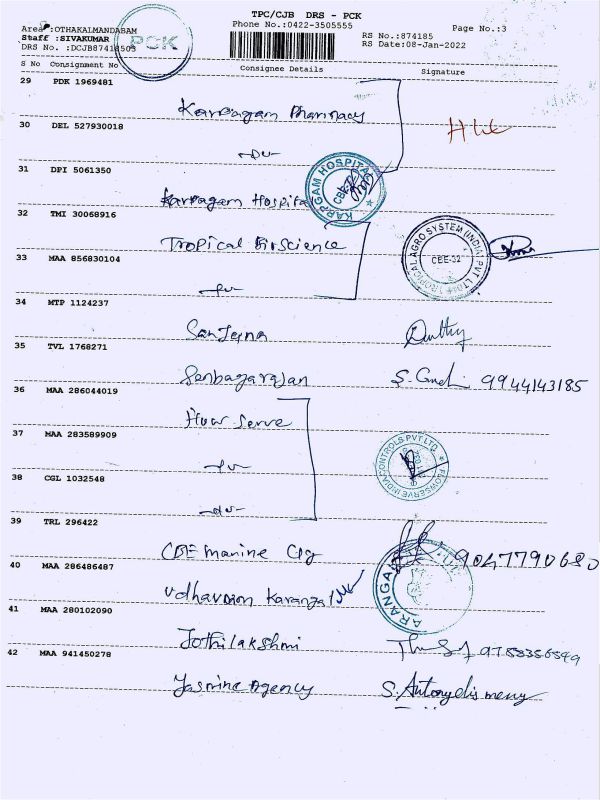 TPC/CJB DRS - PCK
Phone No.:0422-3505555
Page No.:3
Area :OTHAKALMANDABAM
Staff :SIVAKUMAR
RS No.:874185
DRS No. :DCJB87418503
RS Date:08-Jan-2022
PCK
S No Consignment No Consignee Details Signature
29 PDK 1969481
Karpagam Pharmacy
30 DEL 527930018
31 DPI 5061350
KARPGAM HOSPITAL
CBE-32
Karpagam Hospital
32 TMI 30068916
Tropical
TROPICAL AGRO SYSTEM (INDIA) PVT LTD
CBE-32
33 MAA 856830104
34 MTP 1124237
35 TVL 1768271
Senbagarajan 9944143185
36 MAA 286044019
Flow Serve
37 MAA 283589909
FLOWSERVE INDIA CONTROLS PVT LTD.
38 CGL 1032548
39 TRL 296422
9047790680
40 MAA 286486487
41 MAA 280102090
Jothilakshmi
42 MAA 941450278
Jasmine Agency